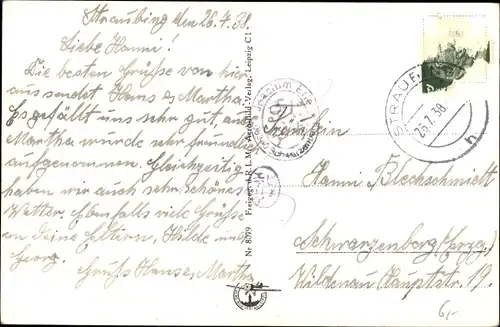 Straubing den 26.7.38.
Liebe Hanni!
Die besten Grüße von hier
aus sendet Hans u. Martha.
Es gefällt uns sehr gut, auf
Martha wurde sehr freundlich
aufgenommen. Gleichzeitig
haben wir auch sehr schönes
Wetter. Ebenfalls viele Grüße
an deine Eltern, Hilde und
Georg.
Gruß Hanse, Martha
Nr. 8079 Freigeg. d. R. L. M. Aero-Bild-Verlag, Leipzig C 1
STRAUBING
26.7.38.
h
Fräulein
Hanni Blechschmidt
Schwarzenberg (Erzg.)
Wildenau Hauptstr. 19.
6,-